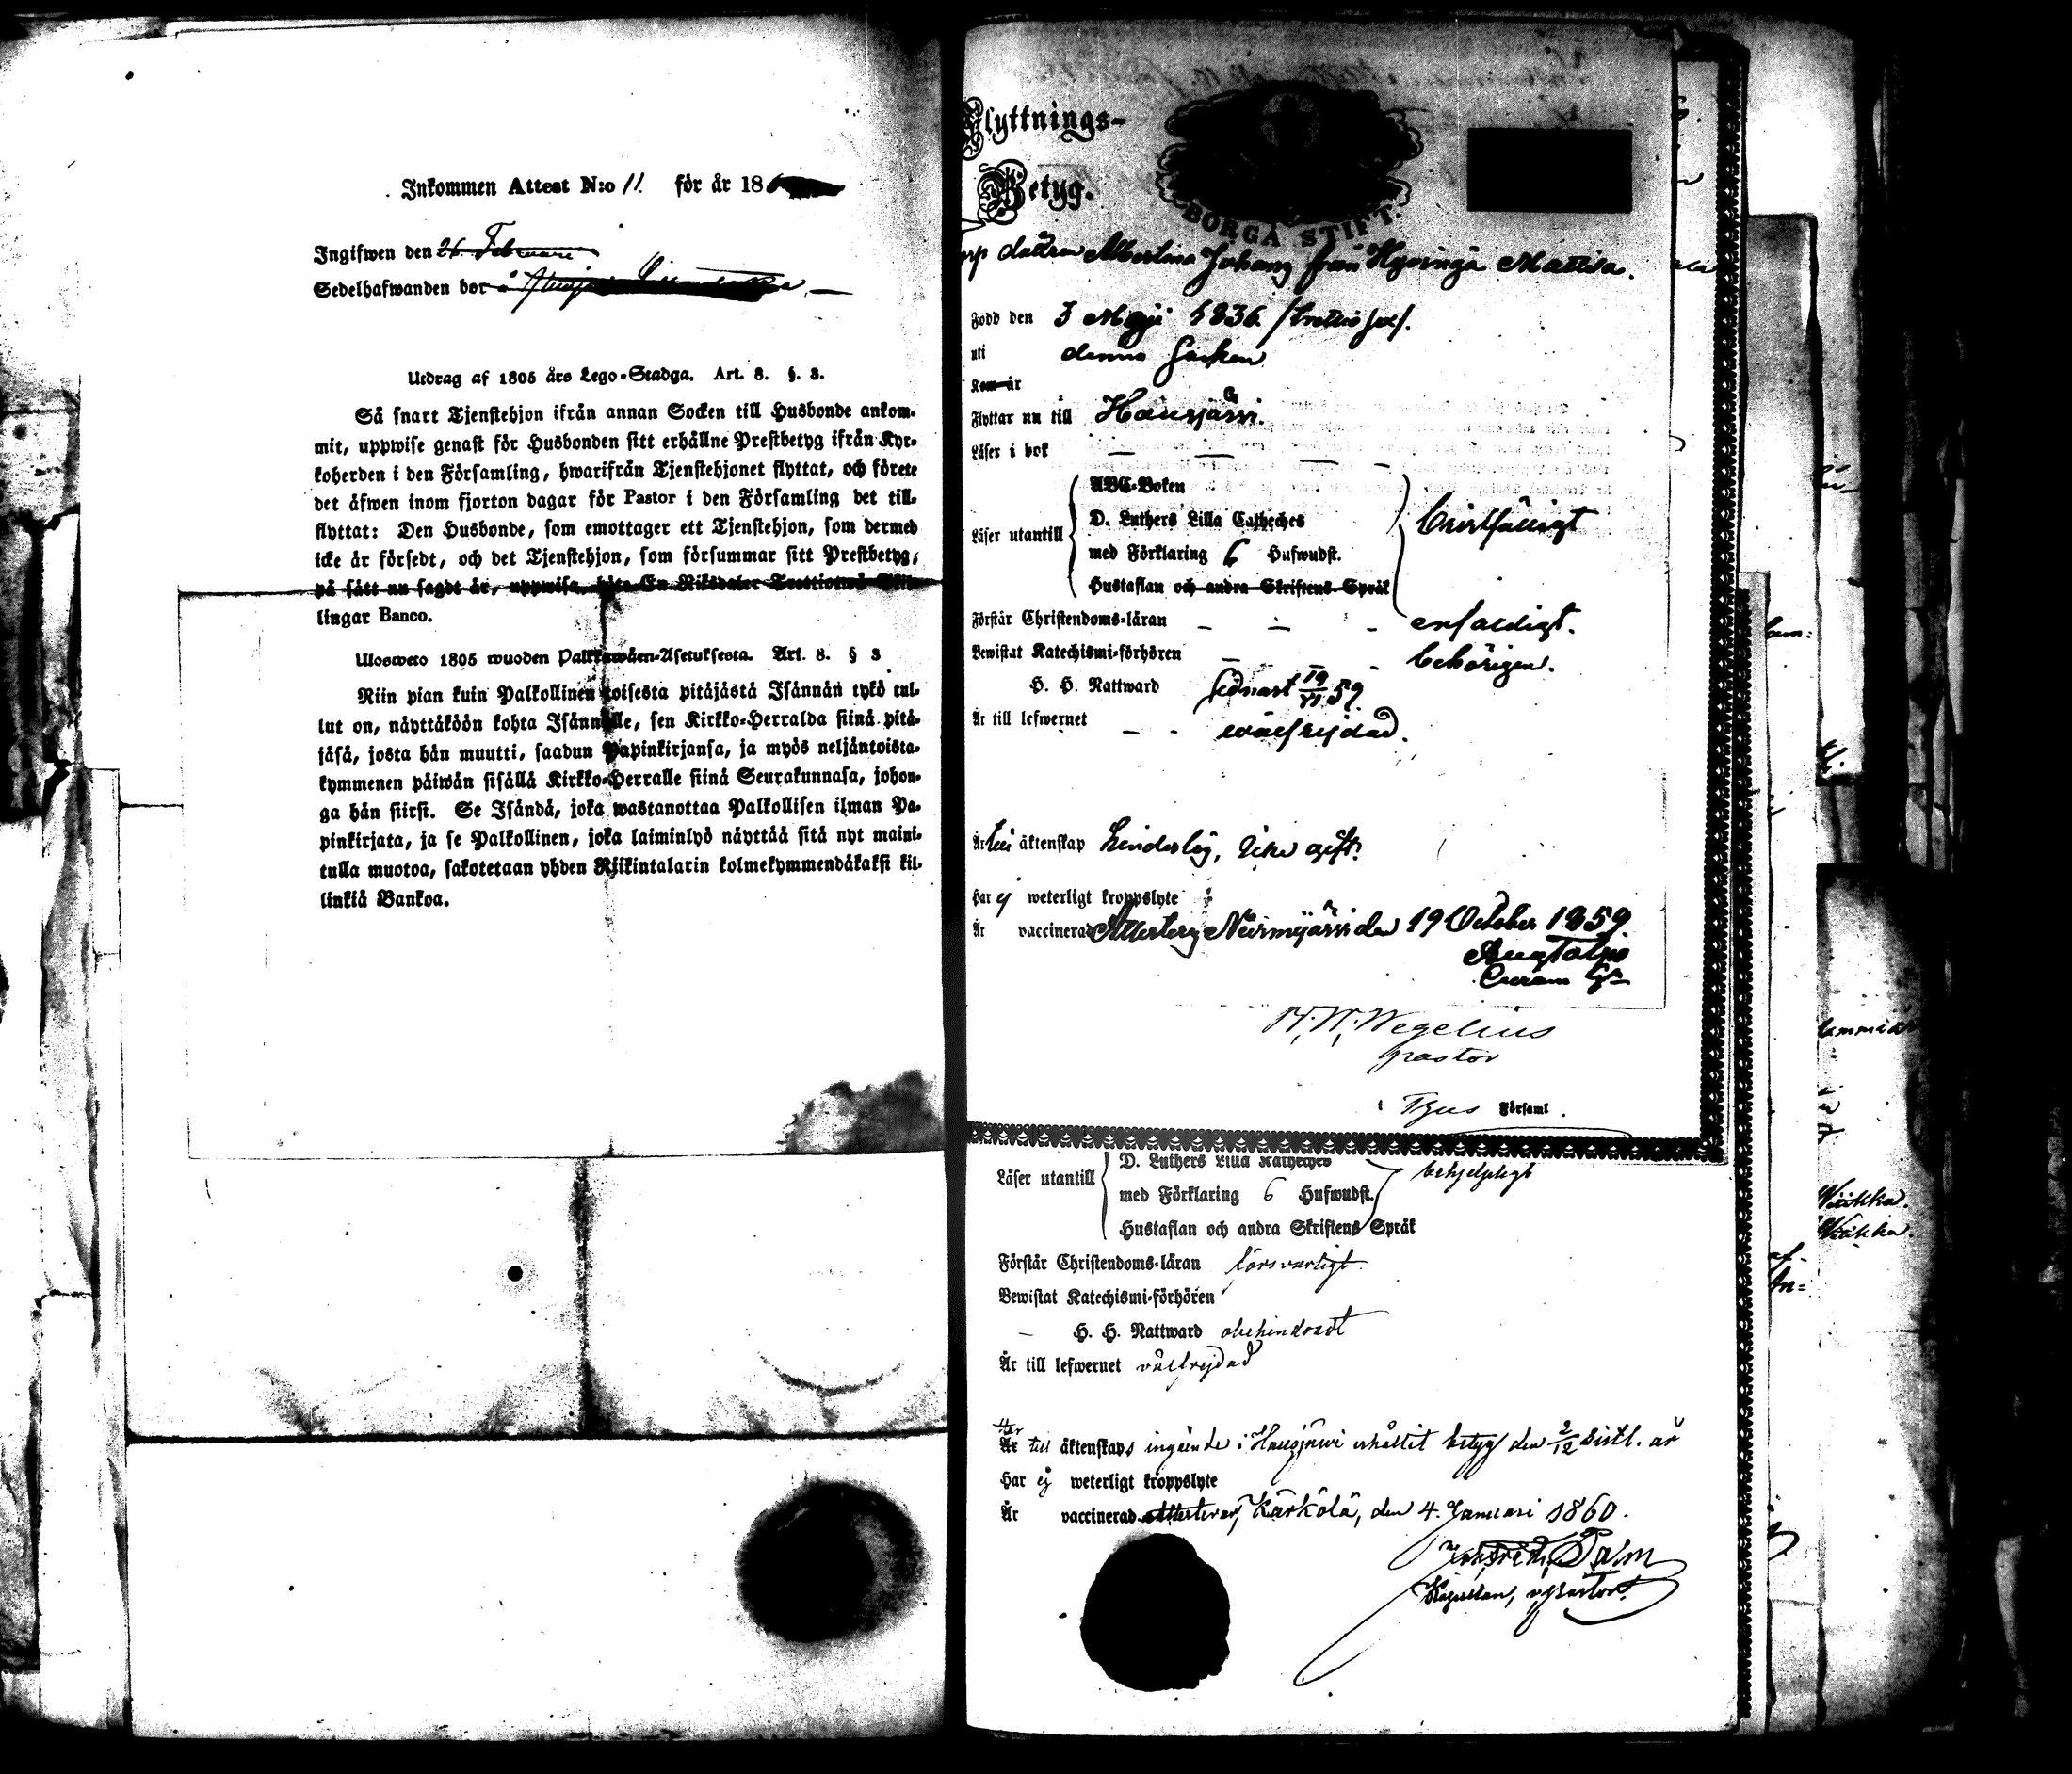 Inkommen Attest N:o 11. för år 186
Ingifwen den 26. Februari
Sedelhafwanden bor å
Utdrag af 1805 års Lego-Stadga. Art. 8. §. 3.
Så snart Tjenstehjon ifrån annan Socken till Husbonde ankom-
mit, uppwise genast för Husbonden sitt erhållne Prestbetyg ifrån Kyr-
koherden i den Församling, hwarifrån Tjenstehjonet flyttat, och förete
det äfwen inom fjorton dagar för Pastor i den Församling det till-
flyttat: Den Husbonde, som emottager ett Tjenstehjon, som dermed
icke är försedt, och det Tjenstehjon, som försummar sitt Prestbetyg,
på sätt nu sagdt är, uppwisa, böte En Riksdaler Trettiotwå Skil-
lingar Banco.
Ulosweto 1805 wuoden Palkkawäen-Asetuksesta. Art. 8. § 3
Niin pian kuin Palkollinen toisesta pitäjästä Isännän tykö tul-
lut on, näyttäköön kohta Isännälle, sen Kirkko-Herralda siinä pitä-
jäsä, josta hän muutti, saadun Papinkirjansa, ja myös neljäntoista-
kymmenen päiwän sisällä Kirkko-Herralle siinä Seurakunnasa, johon-
ga hän siirsi. Se Isändä, joka wastanottaa Palkollisen ilman Pa-
pinkirjata, ja se Palkollinen, joka laiminlyö näyttää sitä nyt maini-
tulla muotoa, sakotetaan yhden Riikintalarin kolmekymmendäkaksi kil-
linkiä Bankoa.
Flyttnings-
Betyg.
BORGÅ STIFT.
dottren Albertina Johans från Hyvingä Mattila.
Född den 3 Maji 1836. /trettio sex/.
uti denna Socken
Kom år
Flyttar nu till Hausjärvi.
Läser i bok — — — —
ABC-Boken
D. Luthers Lilla Catheches
Läser utantill
bristfälligt
med Förklaring 6 Hufwudst.
Hustaflan och andra Skriftens Språk
Förstår Christendoms-läran — — — enfaldigt.
Bewistat Katechismi-förhören — — — behörigen.
H. H. Nattward sednast 19/VI 59.
Är till lefwernet — — wälfrejdad.
Är till äktenskap hinderlös, icke gift.
Har ej weterligt kroppslyte
Är vaccinerad Attesterar Nurmijärvi den 19 October 1859.
H. W. Wegelius
pastor
i Församl.
D. Luthers Lilla Katheches
Läser utantill
behjelpligt
med Förklaring 6 Hufwudst.
Hustaflan och andra Skriftens Språk
Förstår Christendoms-läran försvarligt
Bewistat Katechismi-förhören
— H. H. Nattward obehindradt
Är till lefwernet välfrejdad
Har
Är till äktenskaps ingående i Hausjärvi erhållit betyg den 2/12 sistl. år
Har ej weterligt kroppslyte
Är vaccinerad Attesterar, Kärkölä, den 4. Januari 1860.
Palm
Kapellan, v. pastor.